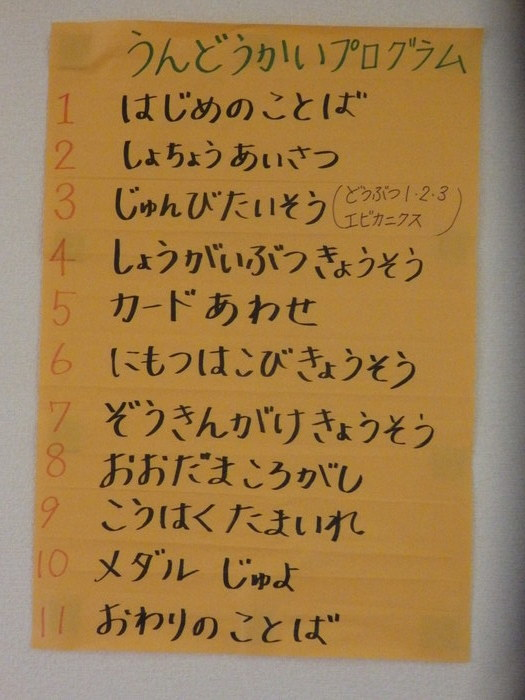 うんどうかいプログラム
1 はじめのことば
2 しょちょうあいさつ
3 じゅんびたいそう(どうぶつ1・2・3
エビカニクス)
4 しょうがいぶつきょうそう
5 カードあわせ
6 にもつはこびきょうそう
7 ぞうきんがけきょうそう
8 おおだまころがし
9 こうはくたまいれ
10 メダル じゅよ
11 おわりのことば